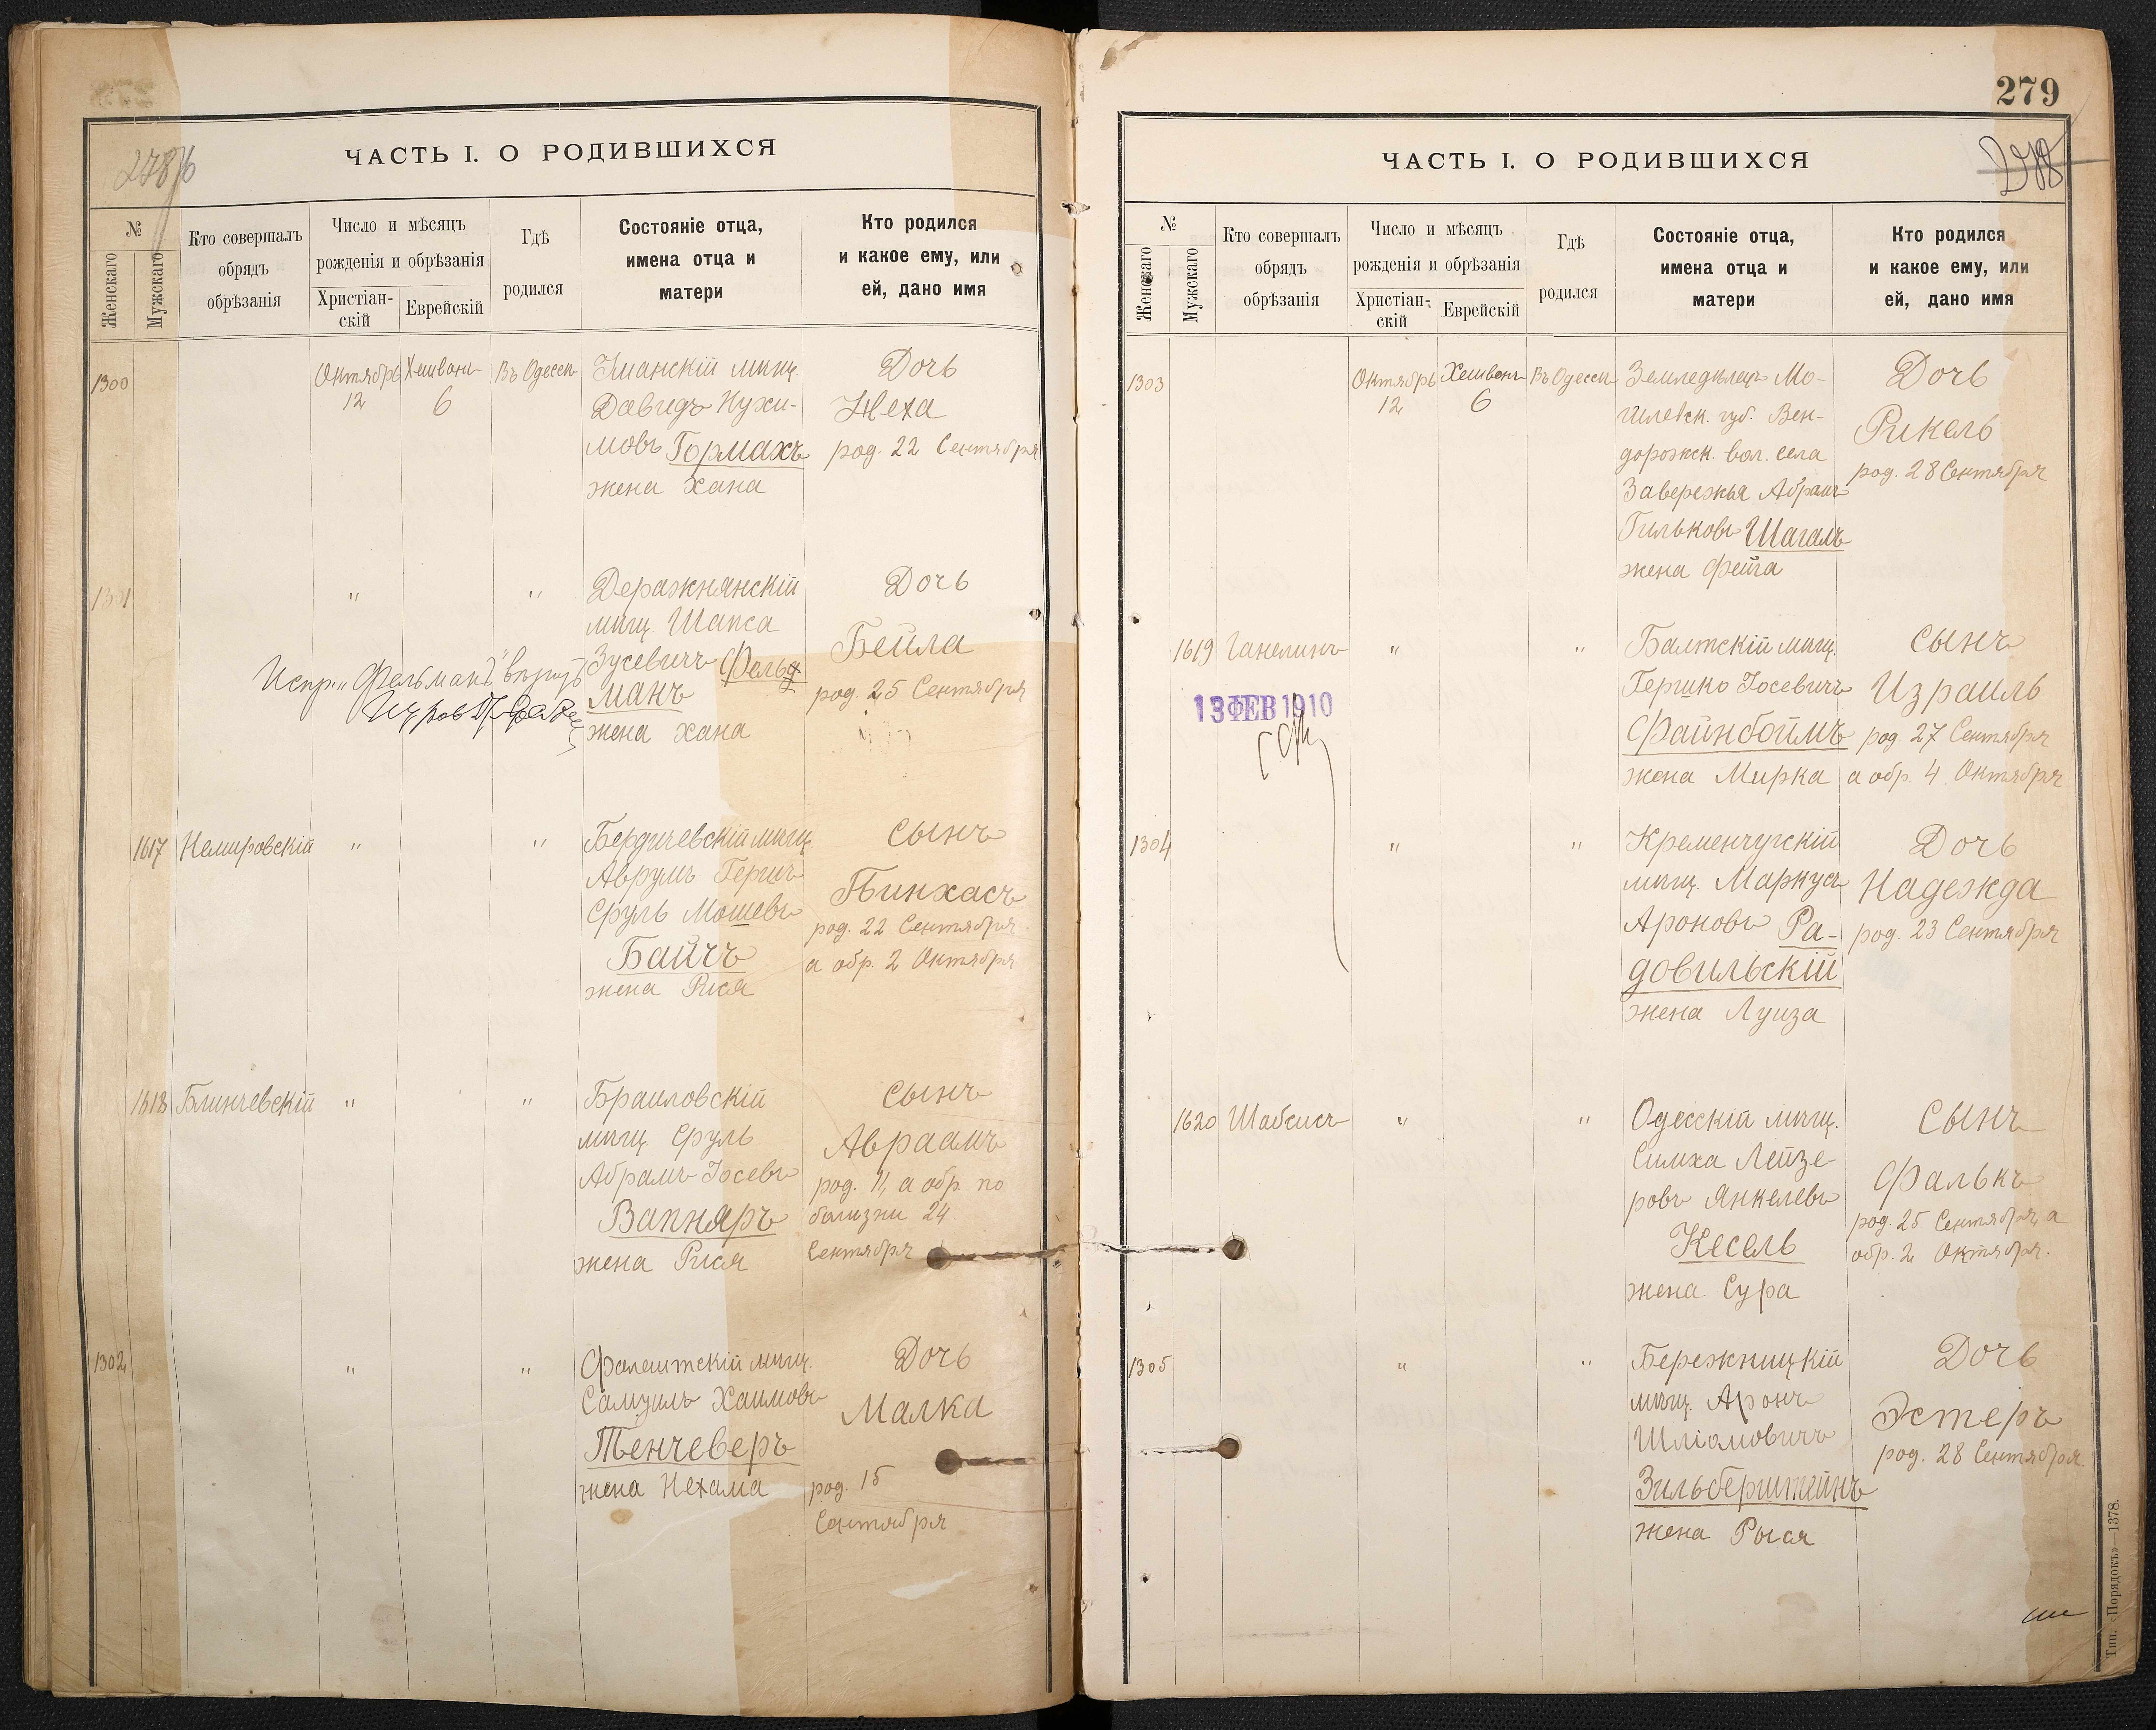 278/6
ЧАСТЬ I. О РОДИВШИХСЯ
№
Женскаго
Мужскаго
Кто совершалъ
обрядъ
обрѣзанія
Число и мѣсяцъ
рожденія и обрѣзанія
Христіан-
скій
Еврейскій
Гдѣ
родился
Состояніе отца,
имена отца и
матери
Кто родился
и какое ему, или
ей, дано имя
1300
Октябрь
12
Хешвонъ
6
Въ Одессѣ
Уманскій мѣщ.
Давидъ Нухи-
мовъ Гормахъ
жена Хана
Дочь
Неха
род. 22 Сентября
1301
"
"
Деражнянскій
мѣщ. Шапса
Зусевичъ Фельд
манъ
жена Хана
Дочь
Бейла
род. 25 Сентября
Испр. "Фельманъ" вѣрить
1617
Немировскій
"
"
Бердичевскій мѣщ.
Аврумъ Гершъ
Сруль Мошевъ
Байчъ
жена Рися
Сынъ
Пинхасъ
род. 22 Сентября
а обр. 2 Октября
1618
Блинчевскій
"
"
Браиловскій
мѣщ. Сруль
Абрамъ Іосевъ
Вапняръ
жена Рися
Сынъ
Авраамъ
род. 11, а обр. по
болизни 24
Сентября
1302
"
"
Фалештскій мѣщ.
Самуилъ Хаимовъ
Тенчеверъ
жена Нехама
Дочь
Малка
род. 15
Сентября
279
278
ЧАСТЬ I. О РОДИВШИХСЯ
№
Женскаго
Мужскаго
Кто совершалъ
обрядъ
обрѣзанія
Число и мѣсяцъ
рожденія и обрѣзанія
Христіан-
скій
Еврейскій
Гдѣ
родился
Состояніе отца,
имена отца и
матери
Кто родился
и какое ему, или
ей, дано имя
1303
Октябрь
12
Хешвонъ
6
Въ Одессѣ
Земледѣлецъ Мо-
гилевск. губ. Вен-
дорожск. вол. села
Завережья Абрамъ
Гильковъ Шагалъ
жена Фейга
Дочь
Рикель
род. 28 Сентября
1619
Ганелинъ
"
"
Балтскій мѣщ.
Гершко Іосевичъ
Файнбоймъ
жена Мирка
Сынъ
Израиль
род. 27 Сентября
а обр. 4 Октября
13 ФЕВ 1910
1304
"
"
Кременчугскій
мѣщ. Маркусъ
Ароновъ Ра-
довильскій
жена Луиза
Дочь
Надежда
род. 23 Сентября
1620
Шабсисъ
"
"
Одесскій мѣщ.
Симха Лейзе-
ровъ Янкелевъ
Кесель
жена Сура
Сынъ
Фалькъ
род. 25 Сентября, а
обр. 2 Октября.
1305
"
"
Бережницкій
мѣщ. Аронъ
Шліомовичъ
Зильберштейнъ
жена Рыся
Дочь
Эстеръ
род. 28 Сентября
Тип. «Порядокъ»—1378.